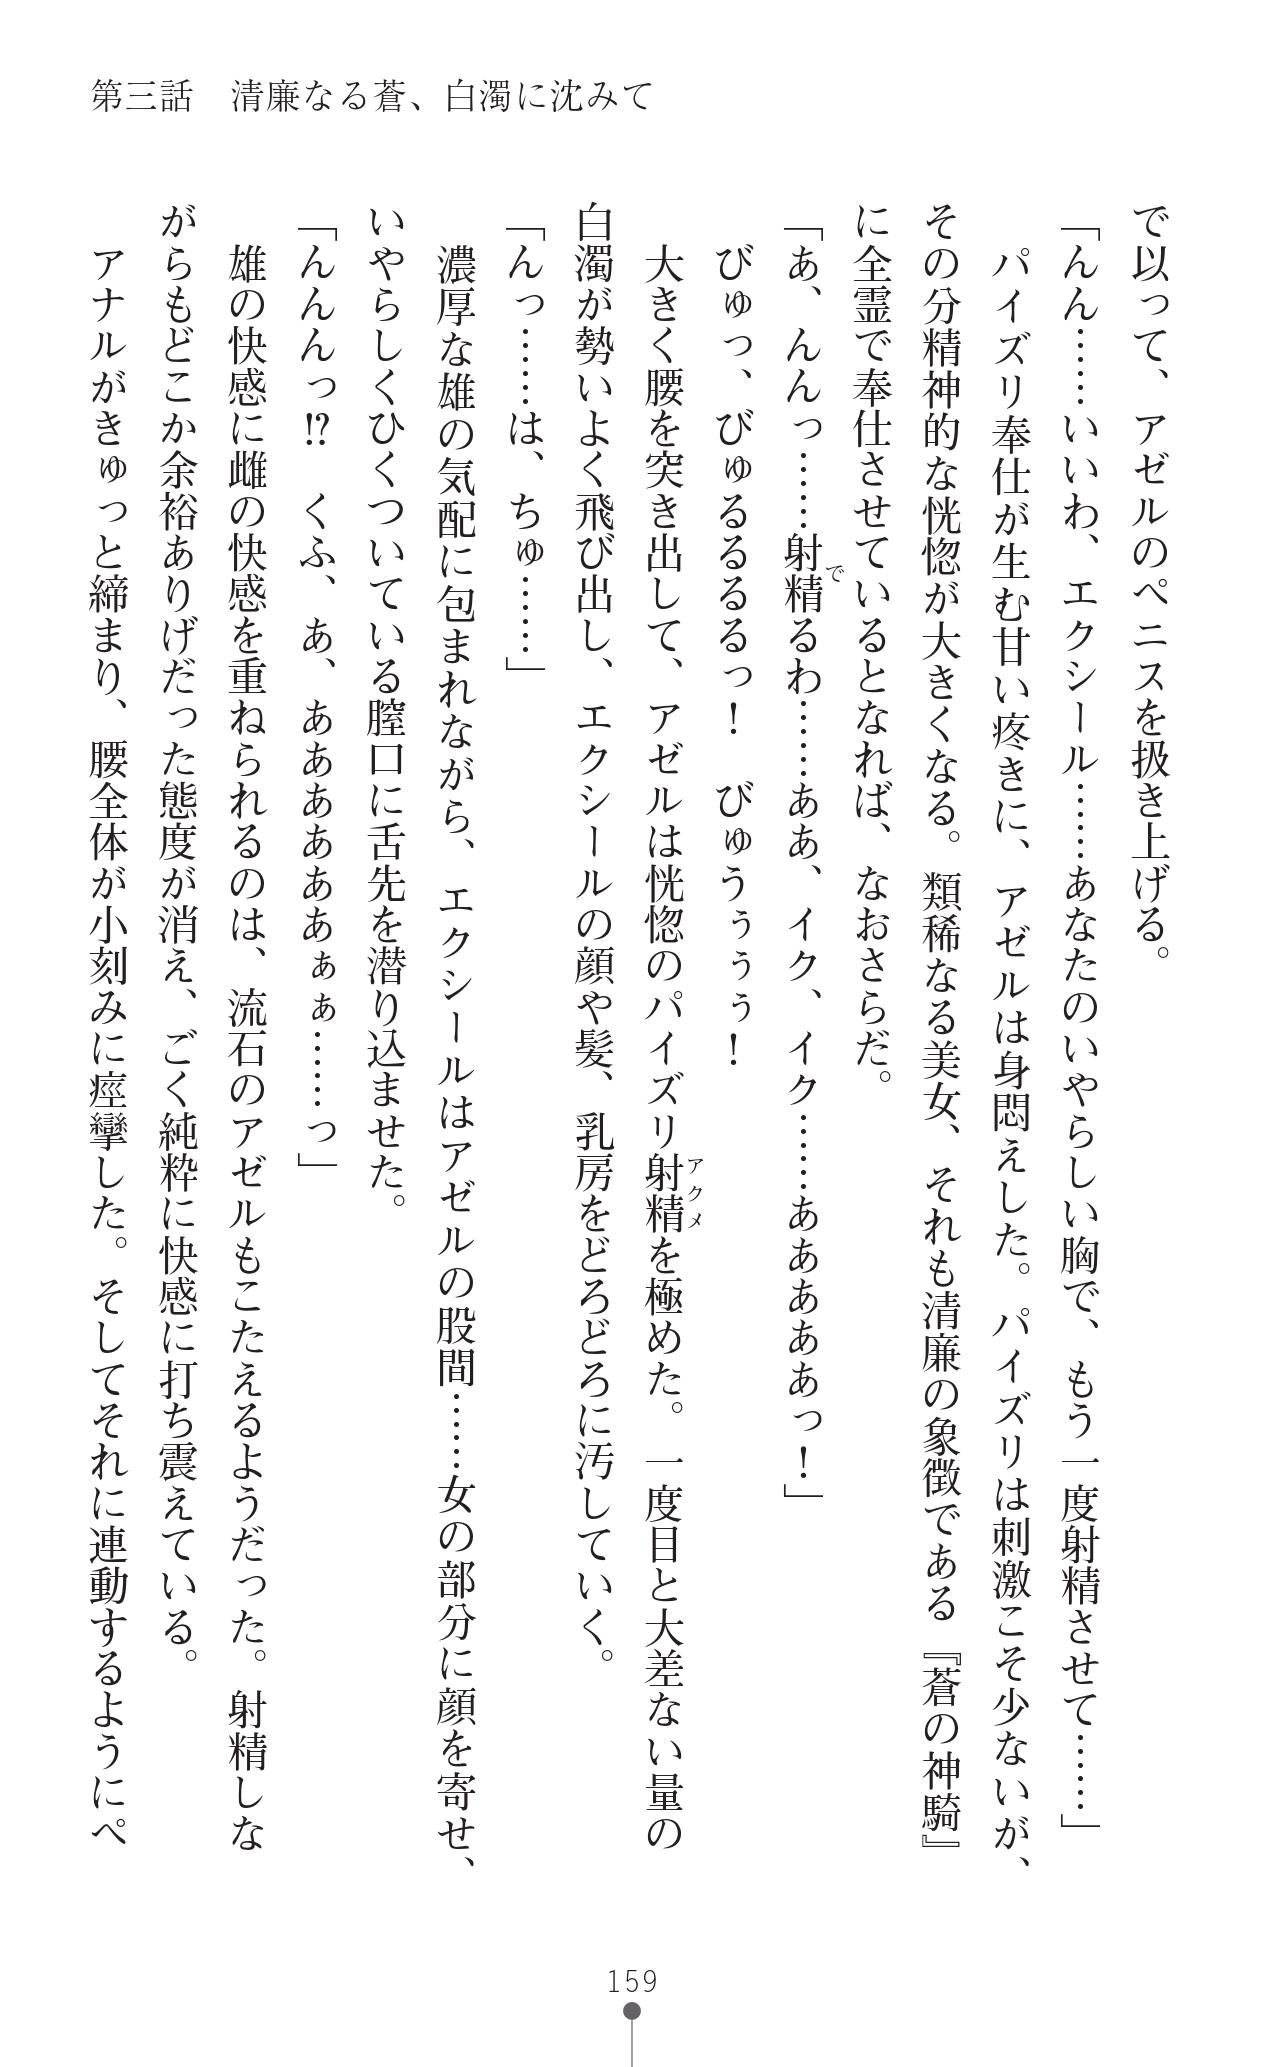 第三話　清廉なる蒼、白濁に沈みて
で以って、アゼルのペニスを扱き上げる。
「んん……いいわ、エクシール……あなたのいやらしい胸で、もう一度射精させて……」
　パイズリ奉仕が生む甘い疼きに、アゼルは身悶えした。パイズリは刺激こそ少ないが、
その分精神的な恍惚が大きくなる。類稀なる美女、それも清廉の象徴である『蒼の神騎』
に全霊で奉仕させているとなれば、なおさらだ。
「あ、んんっ……射精るわ……ああ、イク、イク……あああああっ！」
で
　びゅっ、びゅるるるるっ！　びゅうぅぅぅ！
　大きく腰を突き出して、アゼルは恍惚のパイズリ射精を極めた。一度目と大差ない量の
アクメ
白濁が勢いよく飛び出し、エクシールの顔や髪、乳房をどろどろに汚していく。
「んっ……は、ちゅ……」
　濃厚な雄の気配に包まれながら、エクシールはアゼルの股間……女の部分に顔を寄せ、
いやらしくひくついている膣口に舌先を潜り込ませた。
「んんんっ!?　くふ、あ、ああああああぁぁ……っ」
　雄の快感に雌の快感を重ねられるのは、流石のアゼルもこたえるようだった。射精しな
がらもどこか余裕ありげだった態度が消え、ごく純粋に快感に打ち震えている。
　アナルがきゅっと締まり、腰全体が小刻みに痙攣した。そしてそれに連動するようにペ
159